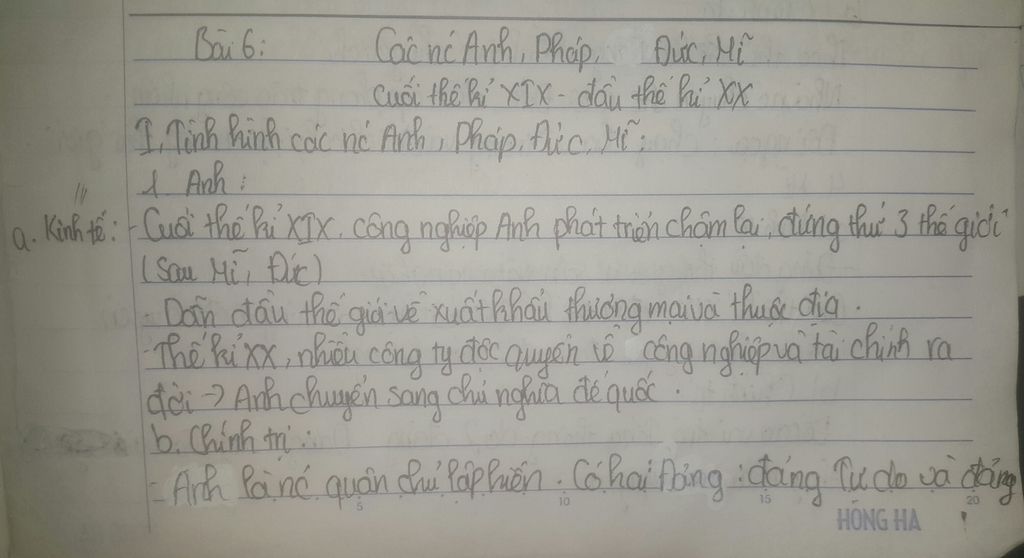 Bài 6: Các nc Anh, Pháp, Đức, Mĩ
Cuối thế kỉ XIX - đầu thế kỉ XX
I, Tình hình các nc Anh, Pháp, Đức, Mĩ:
1. Anh:
a. Kinh tế: - Cuối thế kỉ XIX, công nghiệp Anh phát triển chậm lại, đứng thứ 3 thế giới
(Sau Mĩ, Đức)
- Dẫn đầu thế giới về xuất khẩu thương mại và thuộc địa.
- Thế kỉ XX, nhiều công ty độc quyền về công nghiệp và tài chính ra
đời -> Anh chuyển sang chủ nghĩa đế quốc.
b. Chính trị:
- Anh là nc quân chủ lập hiến. Có hai Đảng: đảng Tự do và đảng
5 10 15 20
HỒNG HÀ